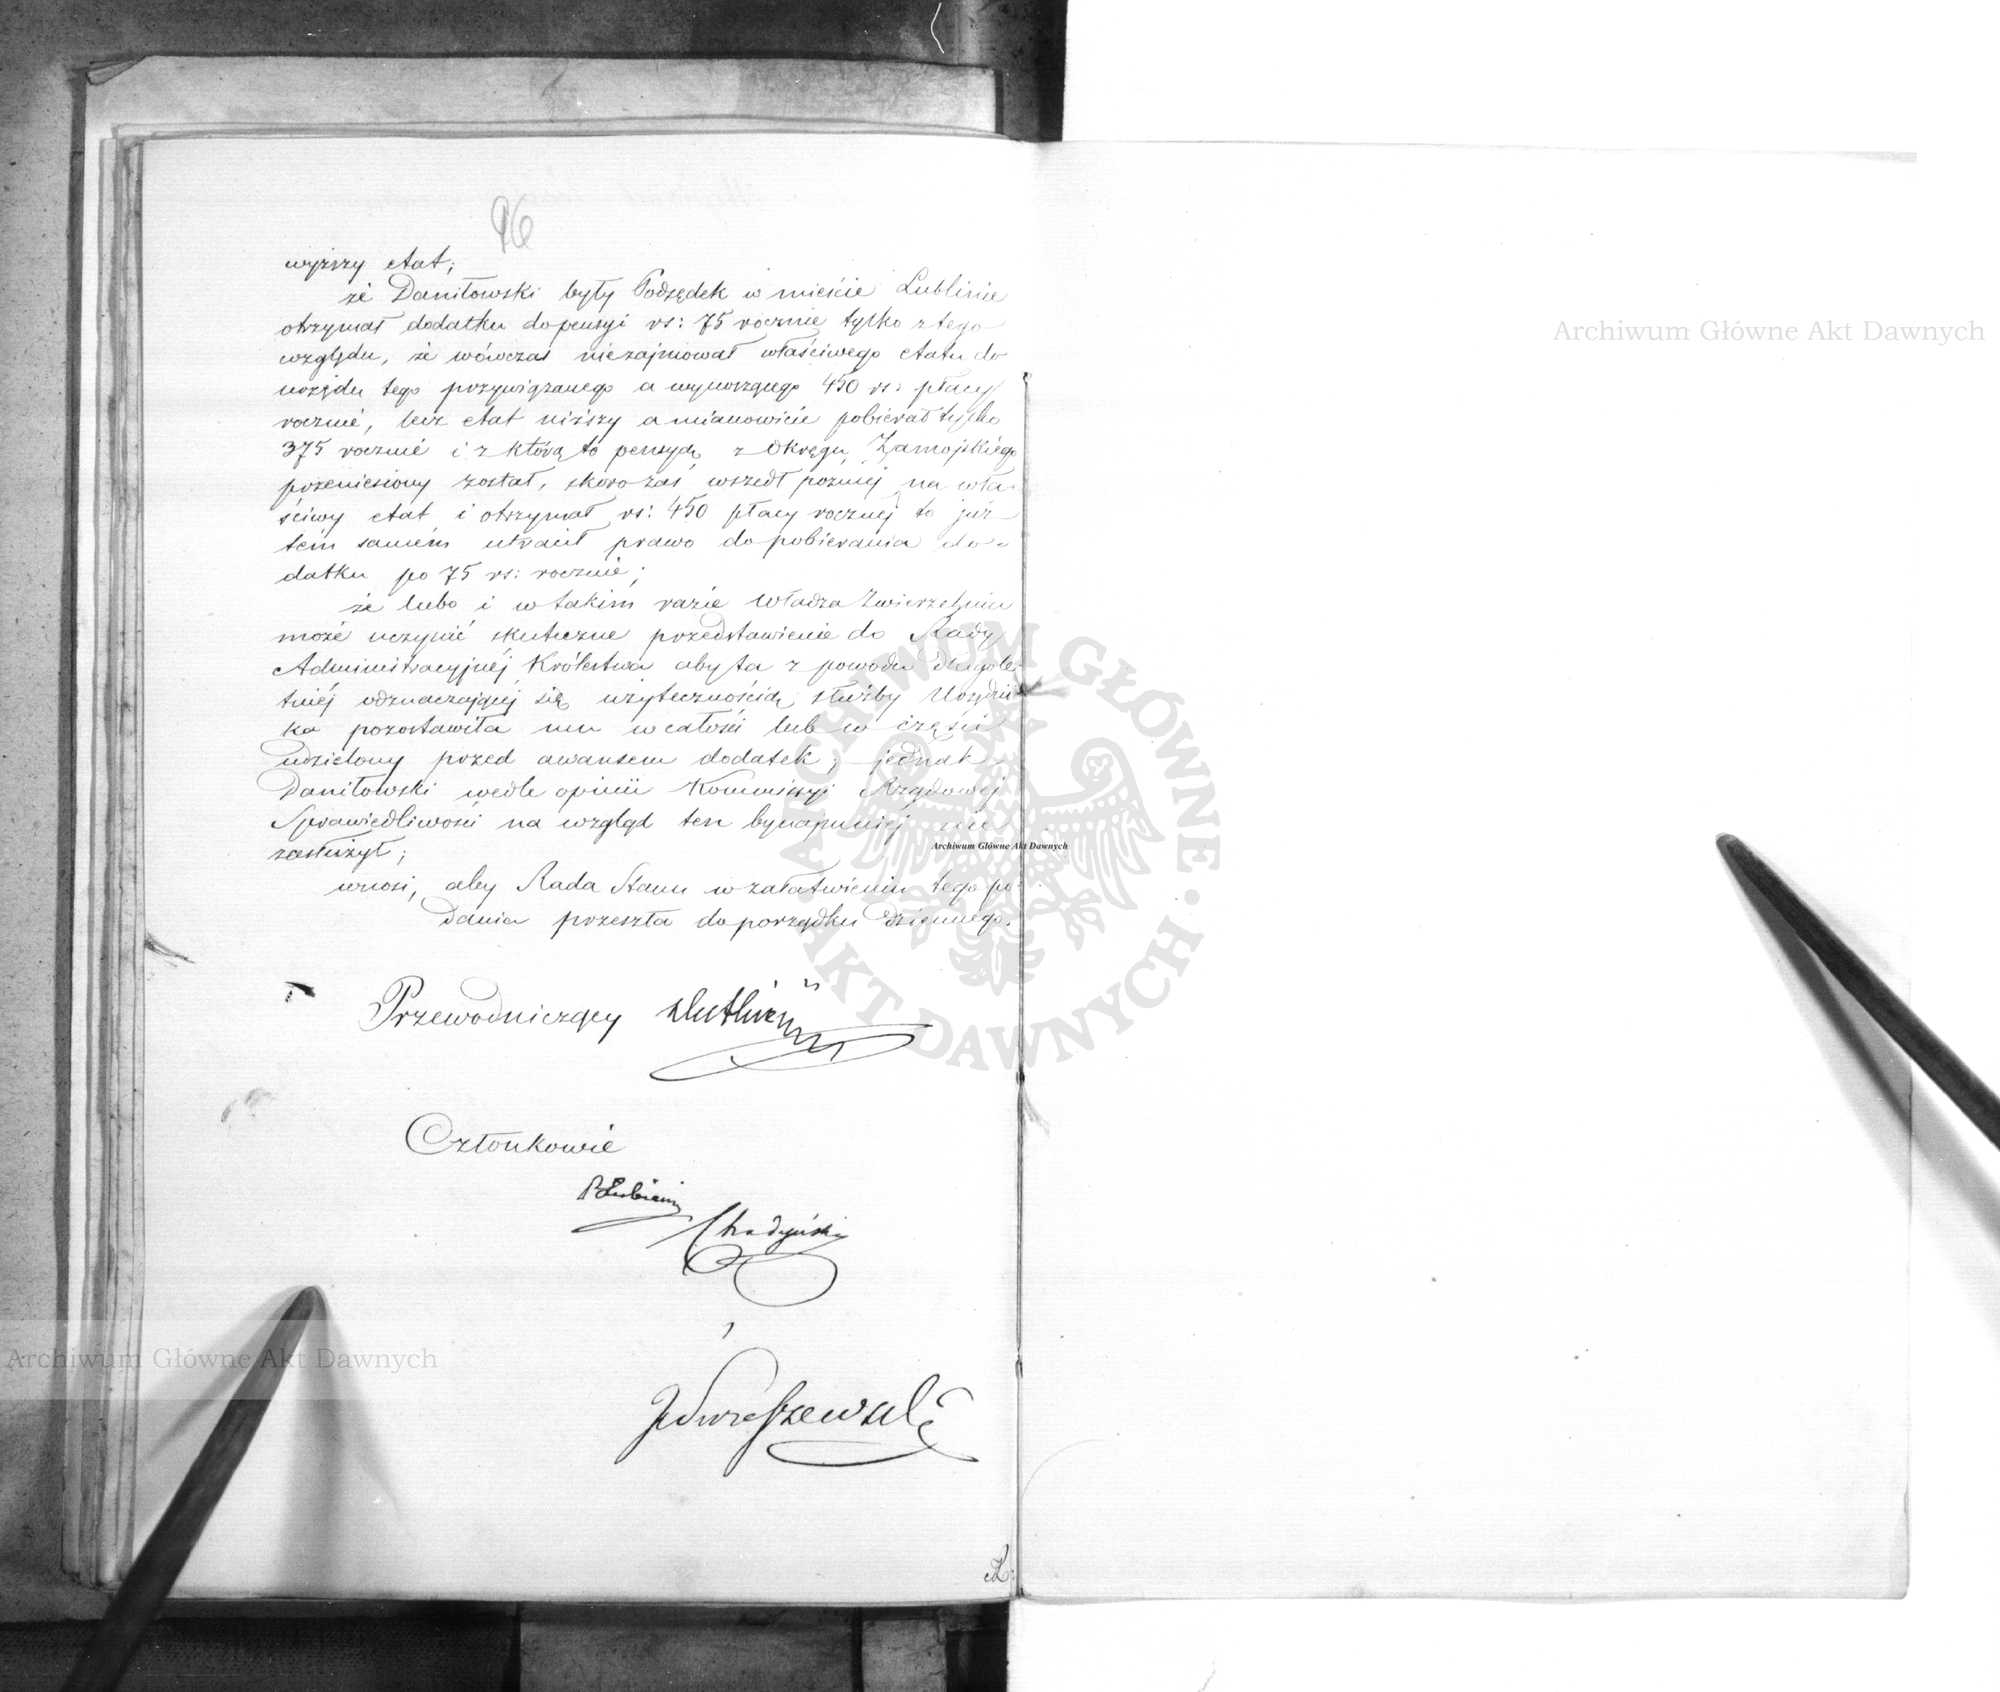 96
wyższy etat;
że Daniłowski były Podsędek w mieście Lublinie
otrzymał dodatku do pensyi rs: 75 rocznie tylko z tego
względu, że wówczas niezajmował właściwego etatu do
urzędu tego przywiązanego a wynoszącego 450 rs: płacy
rocznie, lecz etat niższy a mianowicie pobierał tylko
375 rocznie i z którą to pensyą z Okręgu Zamojskiego
przeniesiony został, skoro zaś wszedł poźniej na wła-
ściwy etat i otrzymał rs: 450 płacy rocznej to już
tem samem utracił prawo do pobierania do-
datku po 75 rs: rocznie;
że lubo i w takim razie Władza Zwierzchnia
może uczynić skuteczne przedstawienie do Rady
Administracyjnej Królestwa aby ta z powodu długole-
tniej odznaczającej się użytecznością służby Urzędni-
ka pozostawiła mu w całości lub w części
udzielony przed awansem dodatek; jednak
Daniłowski wedle opinii Kommissyi Rządowej
Sprawiedliwości na wzgląd ten bynajmniej nie
zasłużył;
wnosi, aby Rada Stanu w załatwieniu tego po-
dania przeszła do porządku dziennego.
Przewodniczący
Członkowie
Archiwum Główne Akt Dawnych
Archiwum Główne Akt Dawnych
Archiwum Główne Akt Dawnych
ARCHIWUM GŁÓWNE · AKT DAWNYCH ·